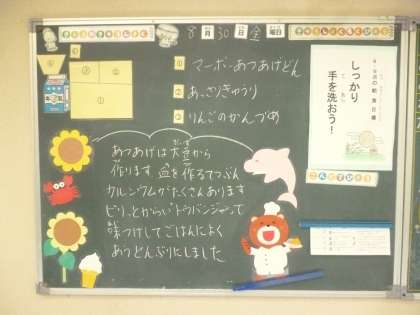 8月30日金曜日
① マーボーあつあげどん
② あっさりきゅうり
③ りんごのかんづめ
あつあげは大豆から
だいず
作ります。血を作るてつぶん
カルシウムがたくさんあります
ピリッとからいトウバンジャンで
味つけしてごはんによく
あうどんぶりにしました
8・9月の給食目標
しっかり
手を洗おう!
て あら
こんだてひょう